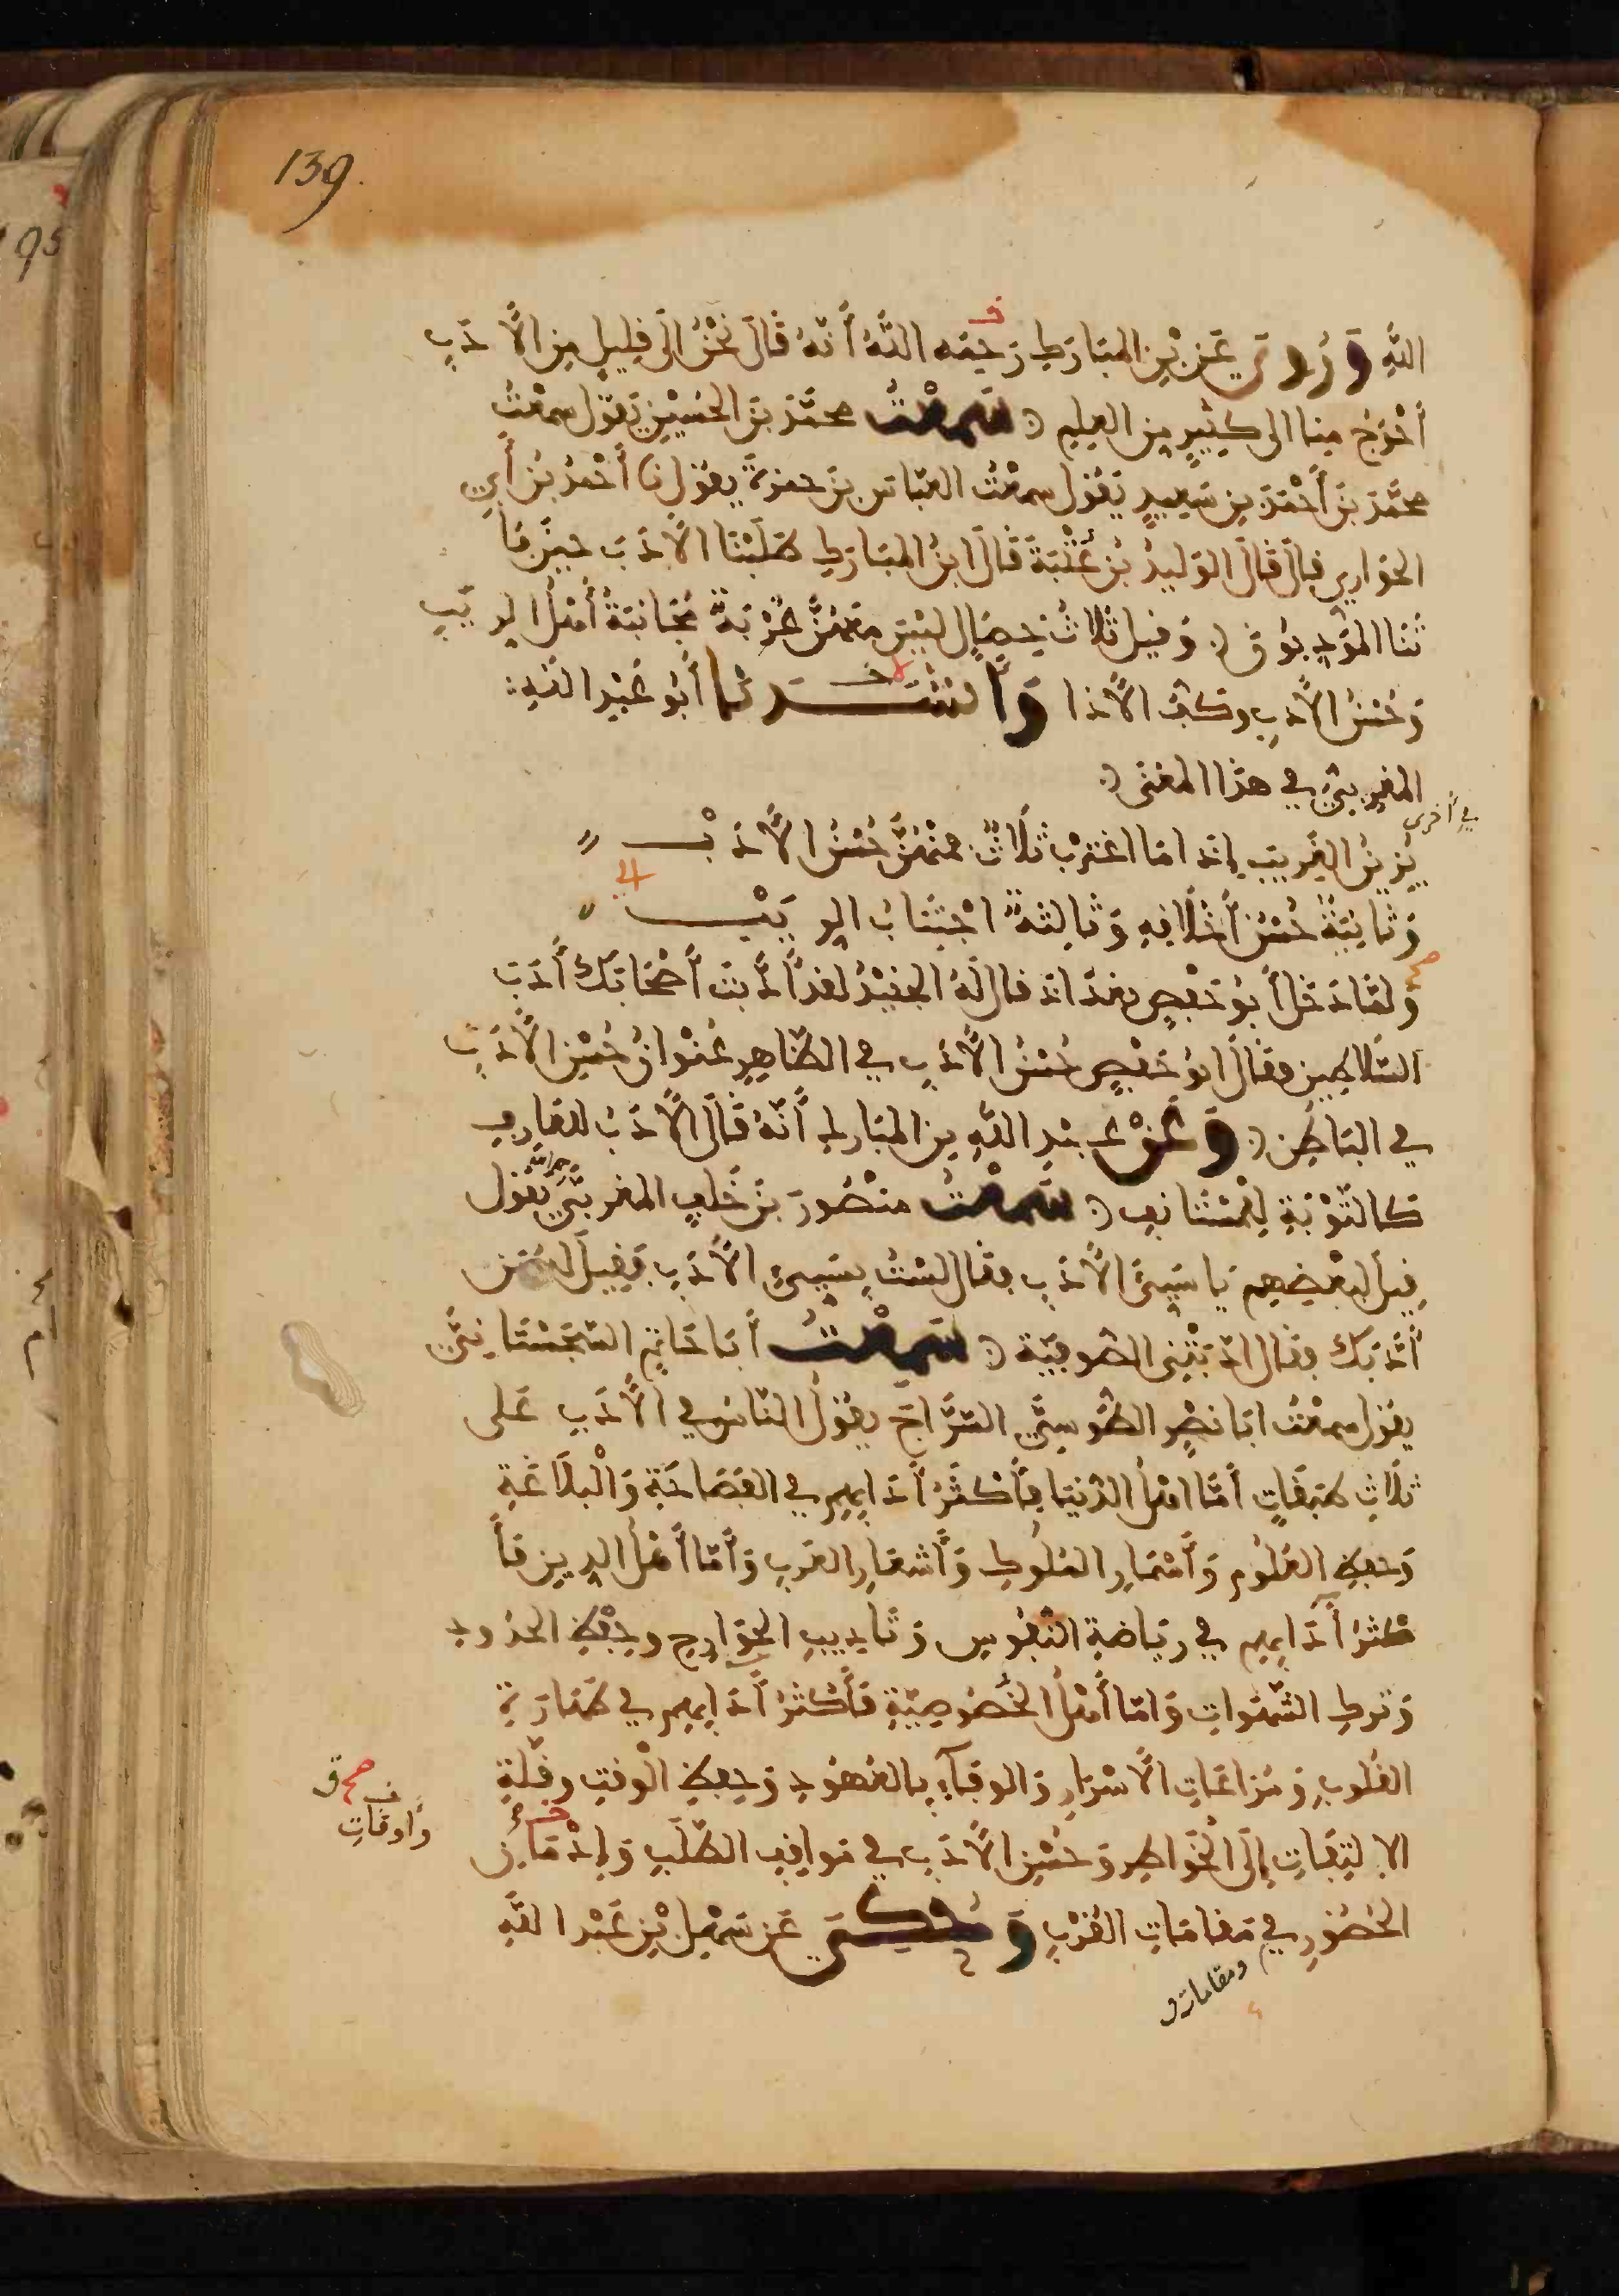 139.
اللَّهِ وَرُوِيَ عَنْ بْنِ المبَارَكِ رَحِمَه اللَّهُ أَنَّهُ قَالَ نَحْنُ إلَى قلِيلٍ مِنَ الأَدَبِ
أحْوَجُ مِنا إلى كثِيرٍ مِنَ العِلمِ سَمِعْتُ محمَّدَ بنَ الحُسَيْنِ يَقول سمعْتُ
محمَّدَ بنَ أحْمَدَ بنِ سَعِيدٍ يَقُول سمعْتُ العبّاسَ بنَ حمزةَ يقول نا أحْمَدُ بنُ أَبِي
الحَوارِي قالَ قَالَ الوَليدُ بْنُ عُتْبَةَ قَالَ ابنُ المبَارَكِ طلَبْنَا الأدَبَ حِينَ فَا
تَنَا المؤَدِّبُونَ وَقيل ثَلاثُ خِصَالٍ ليْسَ معَهُنَّ غُرْبَةٌ مُجَانَبَةُ أهْلِ الرِيَبِ
وَحُسْنُ الأدَبِ وكَفُّ الأذَا وَأَنْشَدَنَا أبُو عَبْدِ اللَّهِ
المغرِبيُّ في هذَا المعْنَى
في أخرى
يُزَيّنُ الغَرِيبَ إذَا مَا اغتَرَبْ ثَلَاثٌ فمِنْهُنَّ حُسْنُ الأَدَبْ
وَثَانِيَةٌ حُسْنُ أخْلَاقِهِ وَثَالِثَةٌ اجْتِنَابُ الرِيَبْ
وَلمَّا دَخَلَ أَبُو حَفْصٍ بغدَاد قالَ لَهُ الجُنَيْدُ لقدْ أَدَّبتَ أَصْحَابَكَ أَدَبَ
السَّلاطِين فقَالَ أبُو حَفْصٍ حُسْنُ الأَدَبِ في الظّاهِرِ عُنْوَانُ حُسْنِ الأدَبِ
في البَاطِنِ وَعَنْ عبْدِ اللَّهِ بنِ المبَارَكِ أَنَّهُ قَالَ الأَدَبُ لِلعَارِفِ
كَالتَّوْبَةِ لِلْمُسْتَانِفِ سَمِعْتُ منْصُورَ بنَ خَلَفٍ المغرِبيَّ يَقول
قِيلَ لبَعْضِهِم يَا سَيِّئَ الأدَبِ فقَال لسْتُ بِسَيِّئِ الأدَبِ فَقِيلَ لَهُ مَن
أَدَّبَكَ فقَال أدَّبَنِي الصُّوفِيّة سَمِعْتُ أَبَا حَاتِمٍ السِّجِسْتَانِيَّ
يقول سمعْتُ أبَا نصْرٍ الطُّوسِيَّ السَّرَّاجَ يقُول النَّاسُ في الأدَبِ عَلى
ثلَاثِ طَبَقَاتٍ أَمَّا أهْلُ الدُّنْيَا فَأَكْثَرُ آدَابِهِم في الفَصَاحَةِ وَالْبَلَاغَةِ
وَحِفظِ العُلُوم وَأَسْمَارِ المُلُوكِ وَأَشْعَارِ العَرَبِ وَأَمَّا أَهْلُ الدِّينِ فَأَ
كْثَرُ آدَابِهِم في رِيَاضَةِ النُّفُوسِ وَتَادِيبِ الجَوَارِحِ وحِفْظِ الحدُودِ
وَتَركِ الشَّهَوَاتِ وَأمّا أَهْلُ الخُصُوصِيَّةِ فَأَكْثَرُ آدَابِهِم في طَهَارَةِ
القُلُوبِ وَمُرَاعَاتِ الأسْرَارِ وَالوفَاءِ بِالعُهُودِ وَحِفظِ الْوَقْتِ وقِلَّةِ
صح
وأوقات
الالتِفَاتِ إلَى الخَوَاطِرِ وَحُسْنِ الأدَبِ في مَوَاقِفِ الطّلَبِ وَإدْمَانِ
الحُضُورِ في مَقَامَاتِ القُرْبِ وَحُكِيَ عَن سَهْلِ بْنِ عَبْدِ اللَّهِ
ومقامات